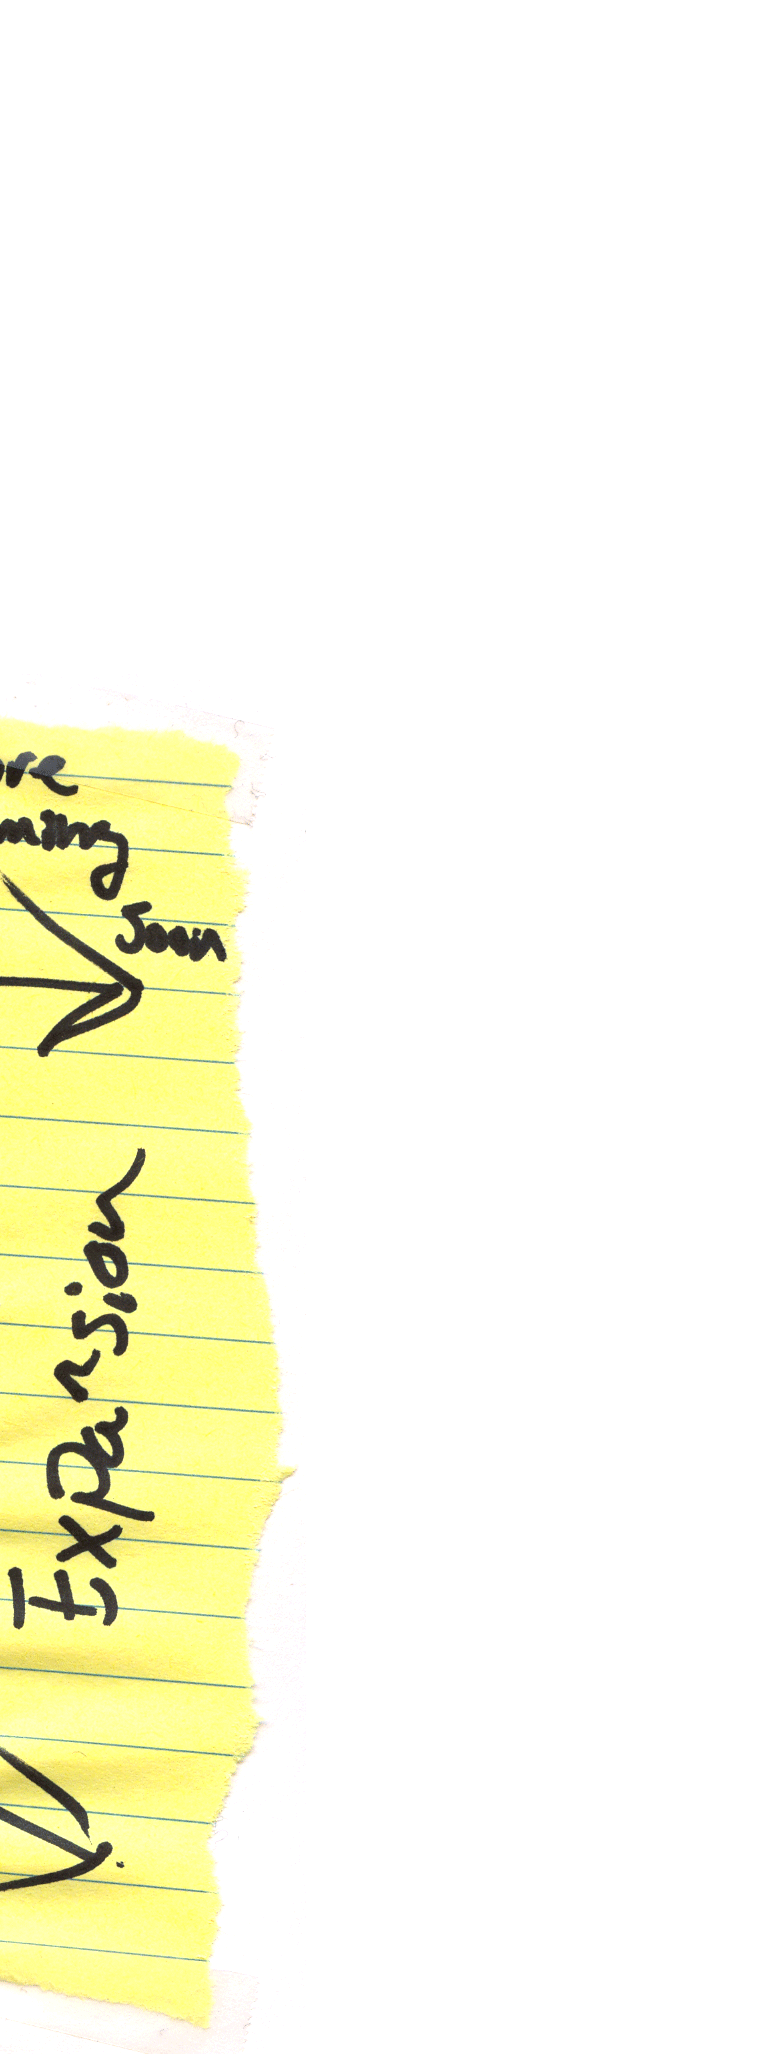 ore
ming
Soon
Expansion